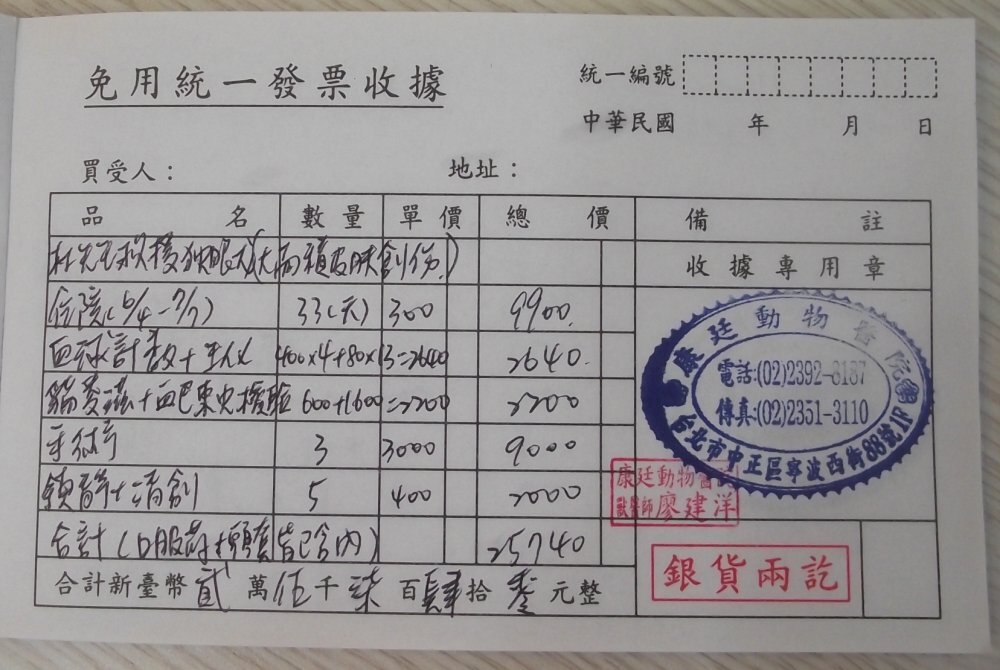 免用統一發票收據
統一編號
中華民國 年 月 日
買受人： 地址：
品名 數量 單價 總價 備註
(大面積皮膚創傷)
收據專用章
住院(6/4-7/7) 33(天) 300 9900
血球計數+生化 400×4+80×13=2640 2640
貓愛滋+血巴東虫檢驗 600+1600=2200 2200
手術 3 3000 9000
鎮靜+清創 5 400 2000
合計(口服葯+頸套皆已含內) 25740
合計新臺幣貳萬伍千柒百肆拾零元整
康廷動物醫院
電話:(02)2392-8187
傳真:(02)2351-3110
台北市中正區寧波西街88號1F
康廷動物醫院
獸醫師廖建洋
銀貨兩訖